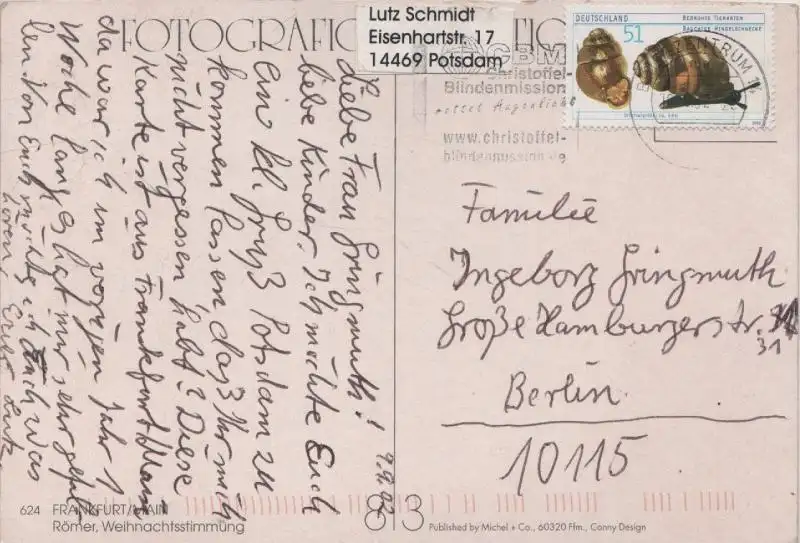 FOTOGRAFIC
TIO
Lutz Schmidt
Eisenhartstr. 17
14469 Potsdam
DEUTSCHLAND
BEDROHTE TIERARTEN
BAUCHIGE WINDELSCHNECKE
51
CBM
Christoffel-
Blindenmission
rettet Augenlicht
www.christoffel-
blindenmission.de
BRIEFZENTRUM 1
9.9.02
Liebe Frau Gringmuth!
liebe Kinder. Ich möchte Euch
ein kl. Gruß Potsdam zu
kommen lassen, daß Ihr mich
nicht vergessen habt? Diese
Karte ist aus Frankfurt/Main
da war ich im vorigen Jahr 1
Woche lang, es hat mir sehr gefal-
len. Von Euch möchte ich auch was
hören, Euer Lutz.
Familie
Ingeborg Gringmuth
Große Hamburger Str.
31
Berlin
10115
624 FRANKFURT/MAIN
Römer, Weihnachtsstimmung
83
Published by Michel + Co., 60320 Ffm., Conny Design